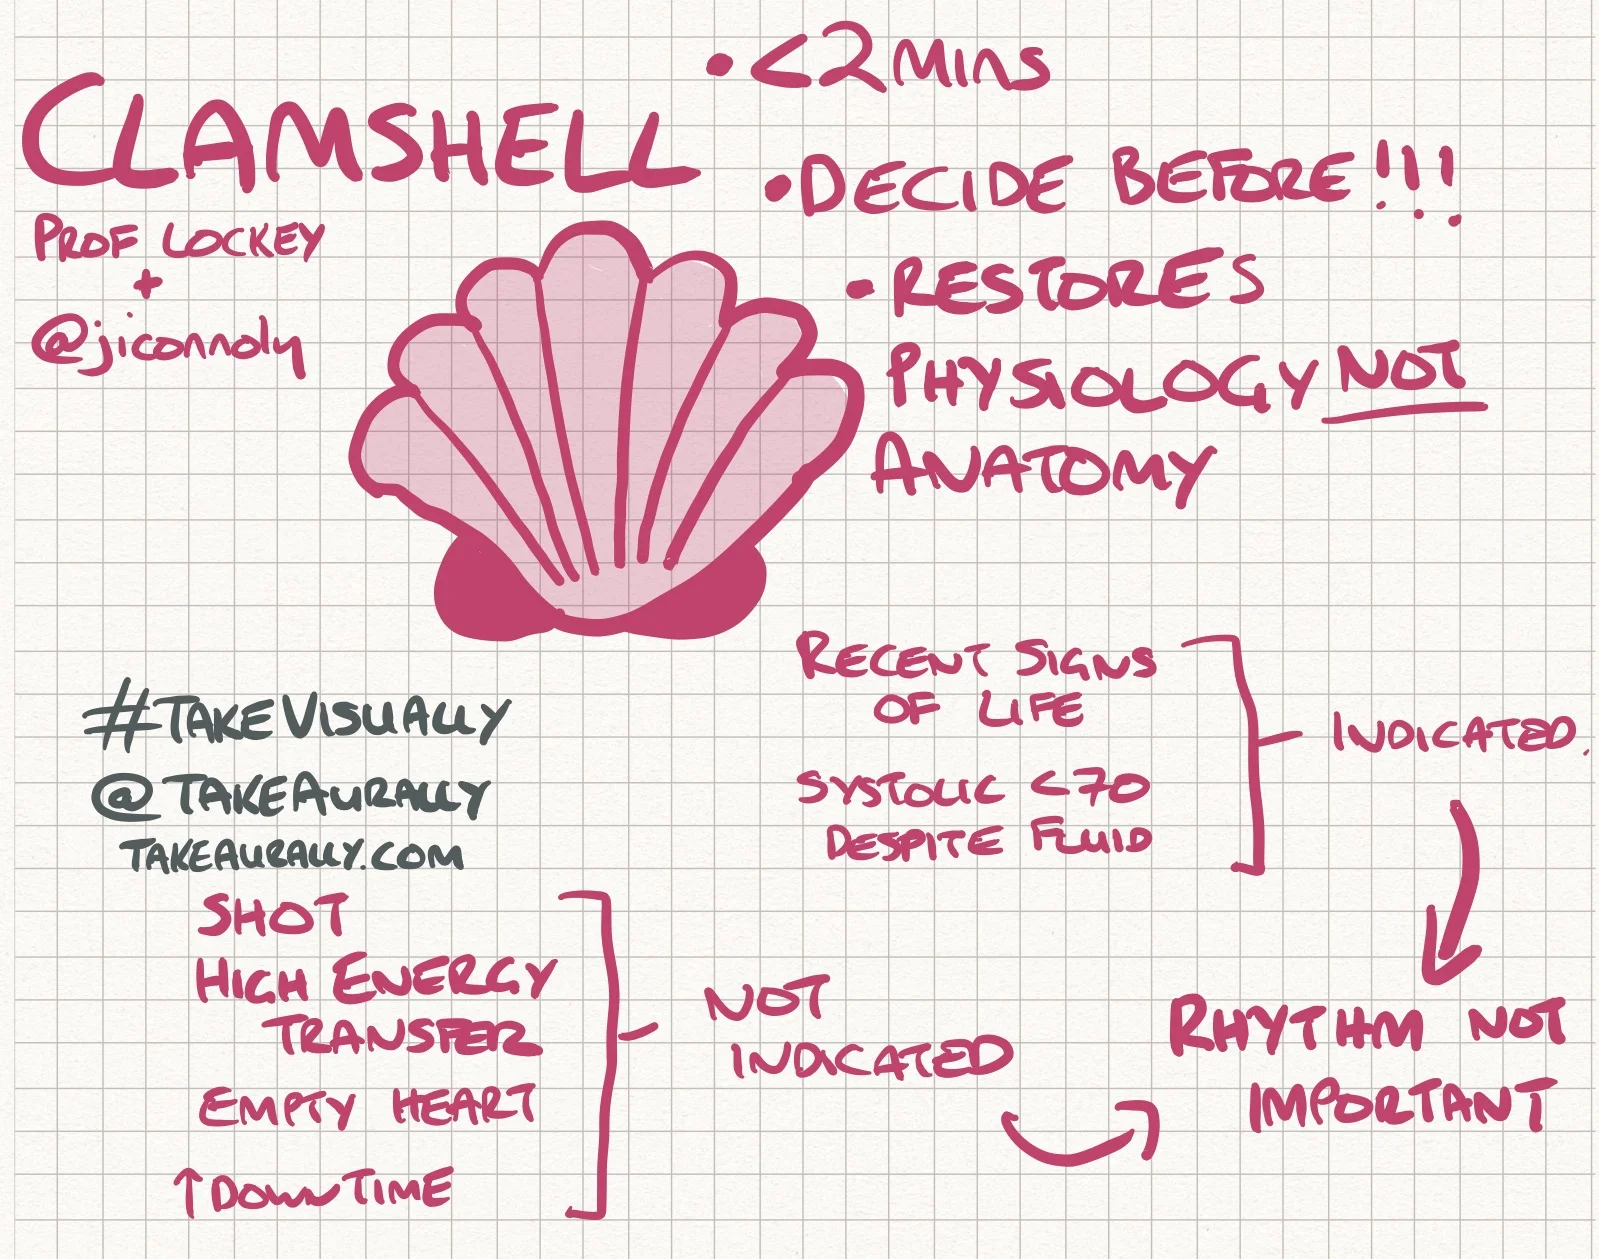 CLAMSHELL
PROF LOCKEY
+
@jiconnoly
• <2 MINS
• DECIDE BEFORE!!!
• RESTORES
PHYSIOLOGY NOT
ANATOMY
RECENT SIGNS
OF LIFE
SYSTOLIC <70
DESPITE FLUID
INDICATED.
#TAKEVISUALLY
@TAKEAURALLY
TAKEAURALLY.COM
SHOT
HIGH ENERGY
TRANSFER
EMPTY HEART
↑ DOWN TIME
NOT
INDICATED
RHYTHM NOT
IMPORTANT